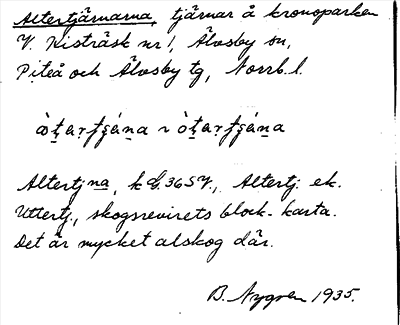 Altertjärnarna, tjärnar å kronoparken
V. Kisträsk nr 1, Älvsby sn,
Piteå och Älvsby tg, Norrb. l.
Altertjna, k bl. 36 SV., Altertj. ek.
Uttertj., skogsrevirets block-karta.
Det är mycket alskog där.
B. Nygren 1935.